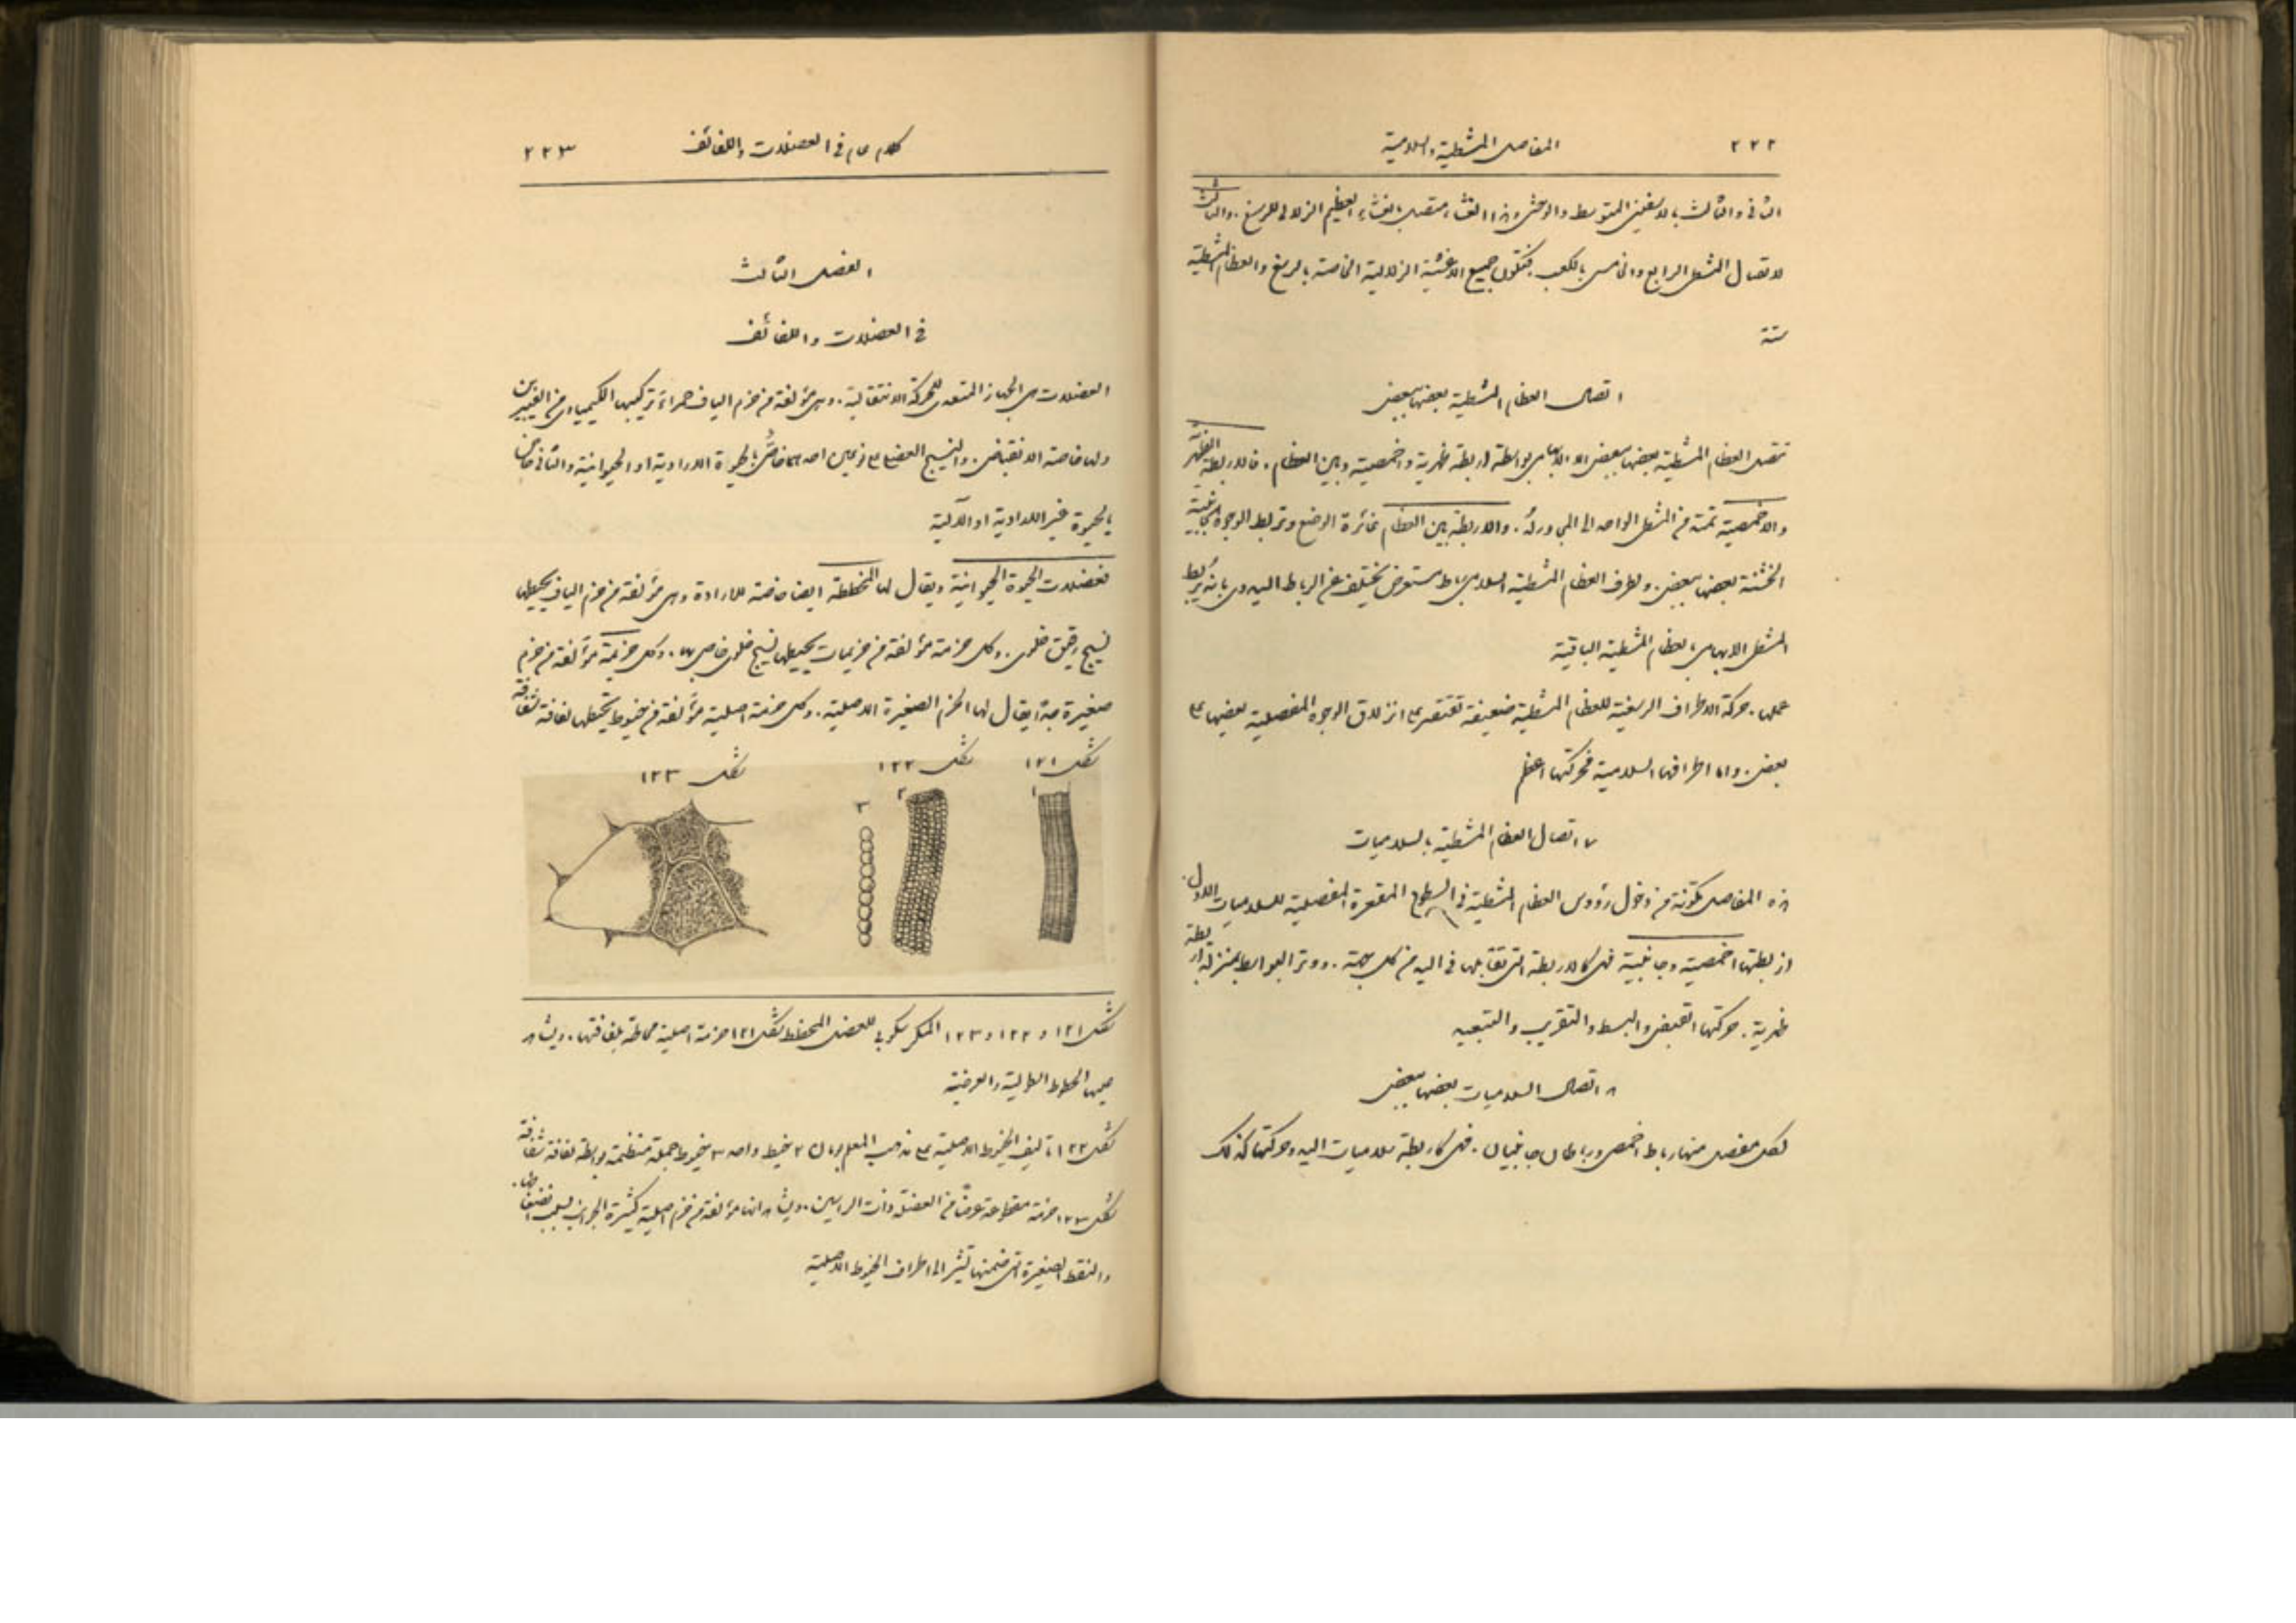 ٢٢٢ المفاصل المشطية والسلامية
الثانى والثالث بالاسفينين المتوسط والوحشى وهذا الغشاء متصل بالغشاء العظيم الزلالى للرسغ. والثالث
لاتصال المشطى الرابع والخامس بالكعب فتكون جميع الاغشية الزلالية الخاصة بالرسغ والعظام المشطية
ستة
اتصال العظام المشطية بعضها ببعض
تتصل العظام المشطية بعضها ببعض الا الابهامى بواسطة اربطة ظهرية واخمصية وبين العظام. فالاربطة الظهرية
والاخمصية تمتد من المشطى الواحد الى المجاور له. والاربطة بين العظام غائرة الوضع وتربط الوجوه الجانبية
الخشنة بعضها ببعض. ولطرف العظام المشطية السلامى رباط مستعرض يختلف عن الرباط اليدوى بانه يربط
المشطى الابهامى بالعظام المشطية الباقية
عملها. حركة الاطراف الرسغية للعظام المشطية ضعيفة تقتصر على انزلاق الوجوه المفصلية بعضها على
بعض. واما اطرافها السلامية فحركتها اعظم
٧ اتصال العظام المشطية بالسلاميات
هذه المفاصل مكونة من دخول رؤوس العظام المشطية فى السطوح المقعرة المفصلية للسلاميات الاول.
اربطتها اخمصية وجانبية فهى كالاربطة التى تقابلها فى اليد من كل جهة. ووتر البواسط بمنزلة اربطة
ظهرية. حركتها القبض والبسط والتقريب والتبعيد
٨ اتصال السلاميات بعضها ببعض
لكل مفصل منها رباط اخمصى ورباطان جانبيان. فهى كاربطة سلاميات اليد وحركتها كذلك
كلام عام فى العضلات واللفائف ٢٢٣
الفصل الثالث
فى العضلات واللفائف
العضلات هى الجهاز المتعدى للحركة الانتقالية. وهى مؤلفة من حزم الياف حمراء تركيبها الكيمياوى من الفيبرين
ولها خاصة الانقباض. والنسيج العضلى على نوعين احدهما خاص بالحيوة الارادية او الحيوانية والثانى خاص
بالحيوة غير الارادية او الآلية
فعضلات الحيوة الحيوانية ويقال لها المخططة ايضا خاضعة للارادة وهى مؤلفة من حزم الياف يحيطها
نسيج رقيق خلوى. وكل حزمة مؤلفة من حزيمات يحيطها نسيج خلوى خاص بها. وكل حزيمة مؤلفة من حزم
صغيرة جدًا يقال لها الحزم الصغيرة الاصلية. وكل حزمة اصلية مؤلفة من خيوط يحيطها لفافة شفافة
شكل ١٢١ شكل ١٢٢ شكل ١٢٣
١ ٢ ٣
شكل ١٢١ و ١٢٢ و ١٢٣ المكرسكوبى للعضل المخطط شكل ١٢١ حزمة اصلية محاطة بلفافتها. ويشاهد
عليها الخطوط الطولية والعرضية
شكل ١٢٢ تاليف الخيوط الاصلية على مذهب المعلم بومان ٢ خيط واحد ٣ خيوط جملة منتظمة بواسطة لفافة شفافة
شكل ١٢٣ حزمة مقطوعة عرضًا من العضلة ذات الراسين. ويشاهد انها مؤلفة من حزم اصلية كثيرة الجوانب بسبب انضغاطها.
والنقط الصغيرة التى ضمنها تشير الى اطراف الخيوط الاصلية